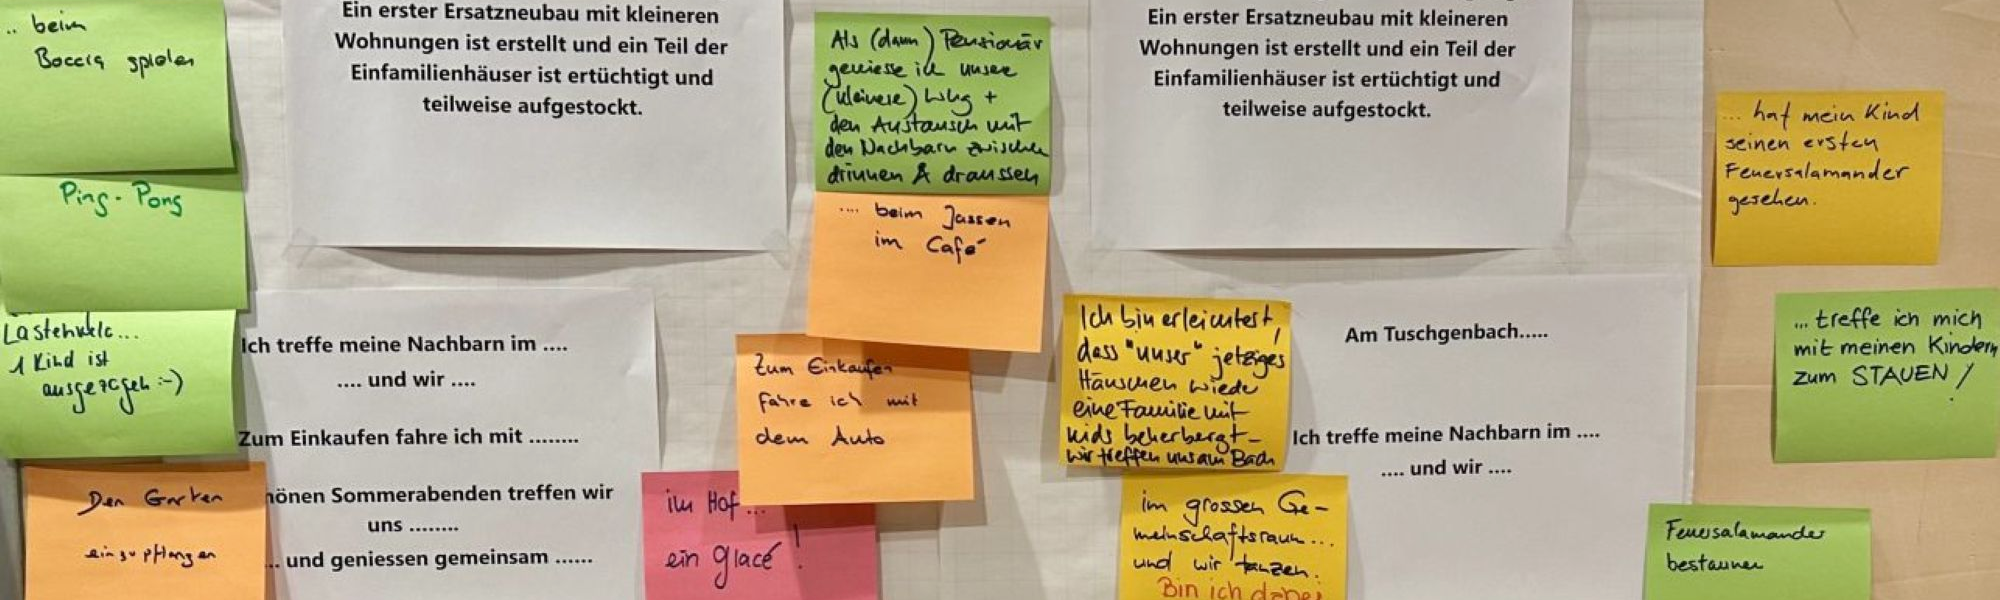 .. beim
Boccia spielen
Ping-Pong
Lastenvelo...
1 Kind ist
ausgezogen :-)
Den Garten
einzupflanzen
Ein erster Ersatzneubau mit kleineren
Wohnungen ist erstellt und ein Teil der
Einfamilienhäuser ist ertüchtigt und
teilweise aufgestockt.
Ich treffe meine Nachbarn im ....
.... und wir ....
Zum Einkaufen fahre ich mit ........
hönen Sommerabenden treffen wir
uns ........
... und geniessen gemeinsam ......
Als (dann) Pensionär
geniesse ich unsere
(kleinere) Whg +
den Austausch mit
den Nachbarn zwischen
drinnen & draussen
.... beim Jassen
im Café
Zum Einkaufen
fahre ich mit
dem Auto
im Hof...
ein Glacé!
Ein erster Ersatzneubau mit kleineren
Wohnungen ist erstellt und ein Teil der
Einfamilienhäuser ist ertüchtigt und
teilweise aufgestockt.
Ich bin erleichtert,
dass "unser" jetziges
Häuschen wieder
eine Familie mit
Kids beherbergt -
wir treffen uns am Bach
im grossen Ge-
meinschaftsraum...
und wir tanzen.
Bin ich dabei
Am Tuschgenbach.....
Ich treffe meine Nachbarn im ....
.... und wir ....
... hat mein Kind
seinen ersten
Feuersalamander
gesehen.
... treffe ich mich
mit meinen Kindern
zum STAUEN!
Feuersalamander
bestaunen